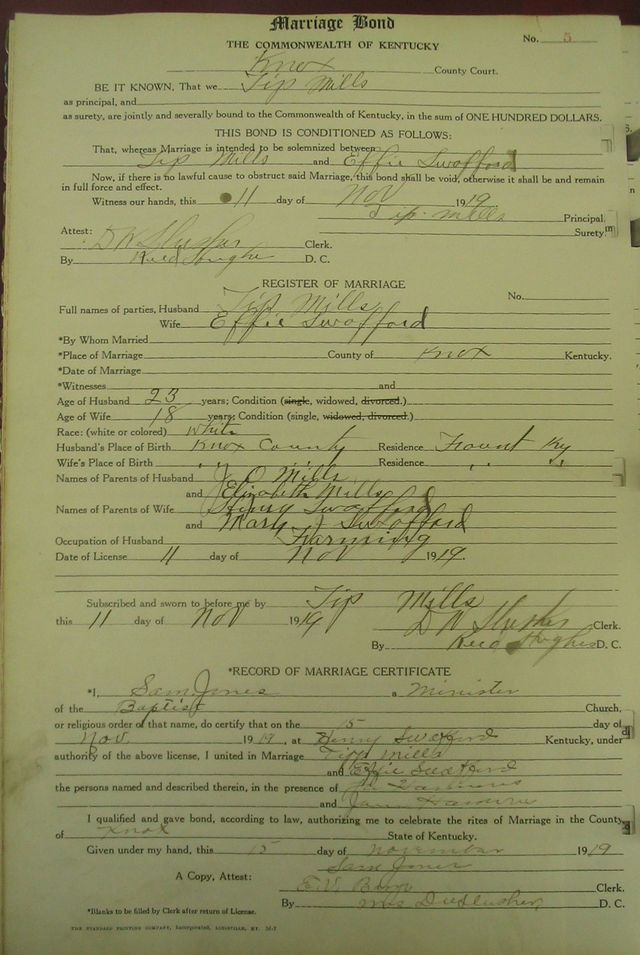 Marriage Bond
No. 5
THE COMMONWEALTH OF KENTUCKY
Knox County Court.
BE IT KNOWN, That we Tip Mills
as principal, and
as surety, are jointly and severally bound to the Commonwealth of Kentucky, in the sum of ONE HUNDRED DOLLARS.
THIS BOND IS CONDITIONED AS FOLLOWS:
That, whereas Marriage is intended to be solemnized between
Tip Mills and Effie Swafford
Now, if there is no lawful cause to obstruct said Marriage, this bond shall be void, otherwise it shall be and remain
in full force and effect.
Witness our hands, this 11 day of Nov 1919
Tip Mills Principal.
Surety.
Attest:
D W Slusher Clerk.
By Reed Hughes D. C.
REGISTER OF MARRIAGE
No.
Full names of parties, Husband Tip Mills
Wife Effie Swofford
*By Whom Married
*Place of Marriage County of Knox Kentucky.
*Date of Marriage
*Witnesses and
Age of Husband 23 years; Condition (single, widowed, divorced.)
Age of Wife 18 years; Condition (single, widowed, divorced.)
Race: (white or colored) White
Husband's Place of Birth Knox County Residence Fount Ky
Wife's Place of Birth " " Residence " "
Names of Parents of Husband J. O Mills
and Elizabeth Mills
Names of Parents of Wife Henry Swafford
and Mary J Swofford
Occupation of Husband Farming
Date of License 11 day of Nov 1919.
Subscribed and sworn to before me by Tip Mills
this 11 day of Nov 1919 D W Slusher Clerk.
By Reed Hughes D. C.
*RECORD OF MARRIAGE CERTIFICATE
*I, Sam Jones a Minister
of the Baptist Church,
or religious order of that name, do certify that on the 15 day of
Nov. 1919, at Henry Swafford Kentucky, under
authority of the above license, I united in Marriage Tipp Mills
and Effie Swafford
the persons named and described therein, in the presence of
and
I qualified and gave bond, according to law, authorizing me to celebrate the rites of Marriage in the County
of Knox State of Kentucky.
Given under my hand, this 15 day of November 1919
Sam Jones
A Copy, Attest:
E.V. Clerk.
By Mrs D. C.
*Blanks to be filled by Clerk after return of License.
THE STANDARD PRINTING COMPANY, Incorporated, LOUISVILLE, KY.